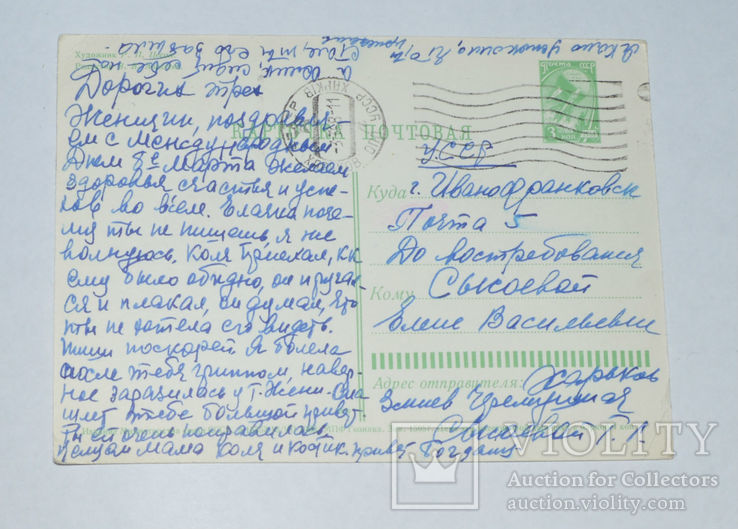 Художник
Дорогих трех
Женщин, поздравля-
ем с международным
Днем 8е Марта желаем
здоровья счастья и успе-
хов во всем. Елочка поче-
му ты не пишешь, я же
волнуюсь. Коля приехал, как
ему было обидно, он и ругал-
ся и плакал, он думал, что
ты не хотела его видеть.
Пиши поскорей Я болела
после тебя гриппом навер-
ное заразилась у т. Жени. Она
шлет тебе большой привет
Ты ей очень понравилась
Целуем Мама Коля и Котик. привет Богдану
КАРТОЧКА ПОЧТОВАЯ
ПОЧТА СССР
3 КОП
УССР
Куда г. Иванофранковск
Почта 5
До востребования
Кому Сысоевой
Елене Васильевне
Адрес отправителя: Харьков
Змиев
Сысоевой
VIOLITY
Auction for Collectors
auction.violity.com/